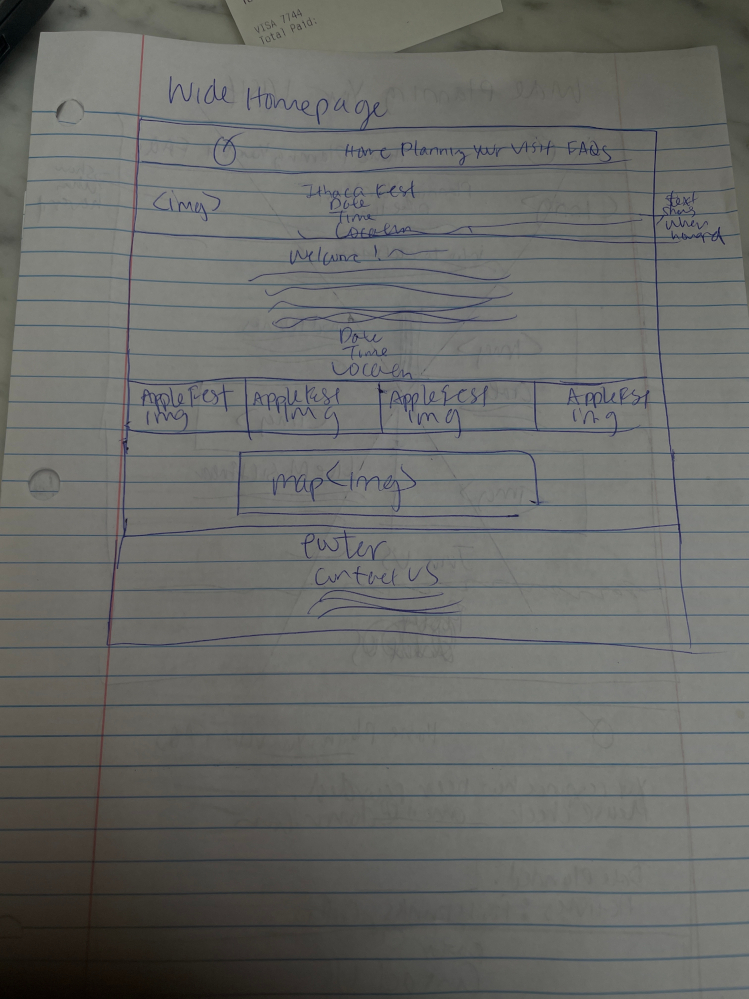 VISA 7744
Total Paid:
Wide Homepage
Home Planning Your Visit FAQs
<img>
Ithaca Fest
Date
Time
Location
text
shows
when
hovered
Welcome!
Date
Time
Location
AppleFest
img
AppleFest
img
AppleFest
img
AppleFest
img
map<img>
footer
Contact US